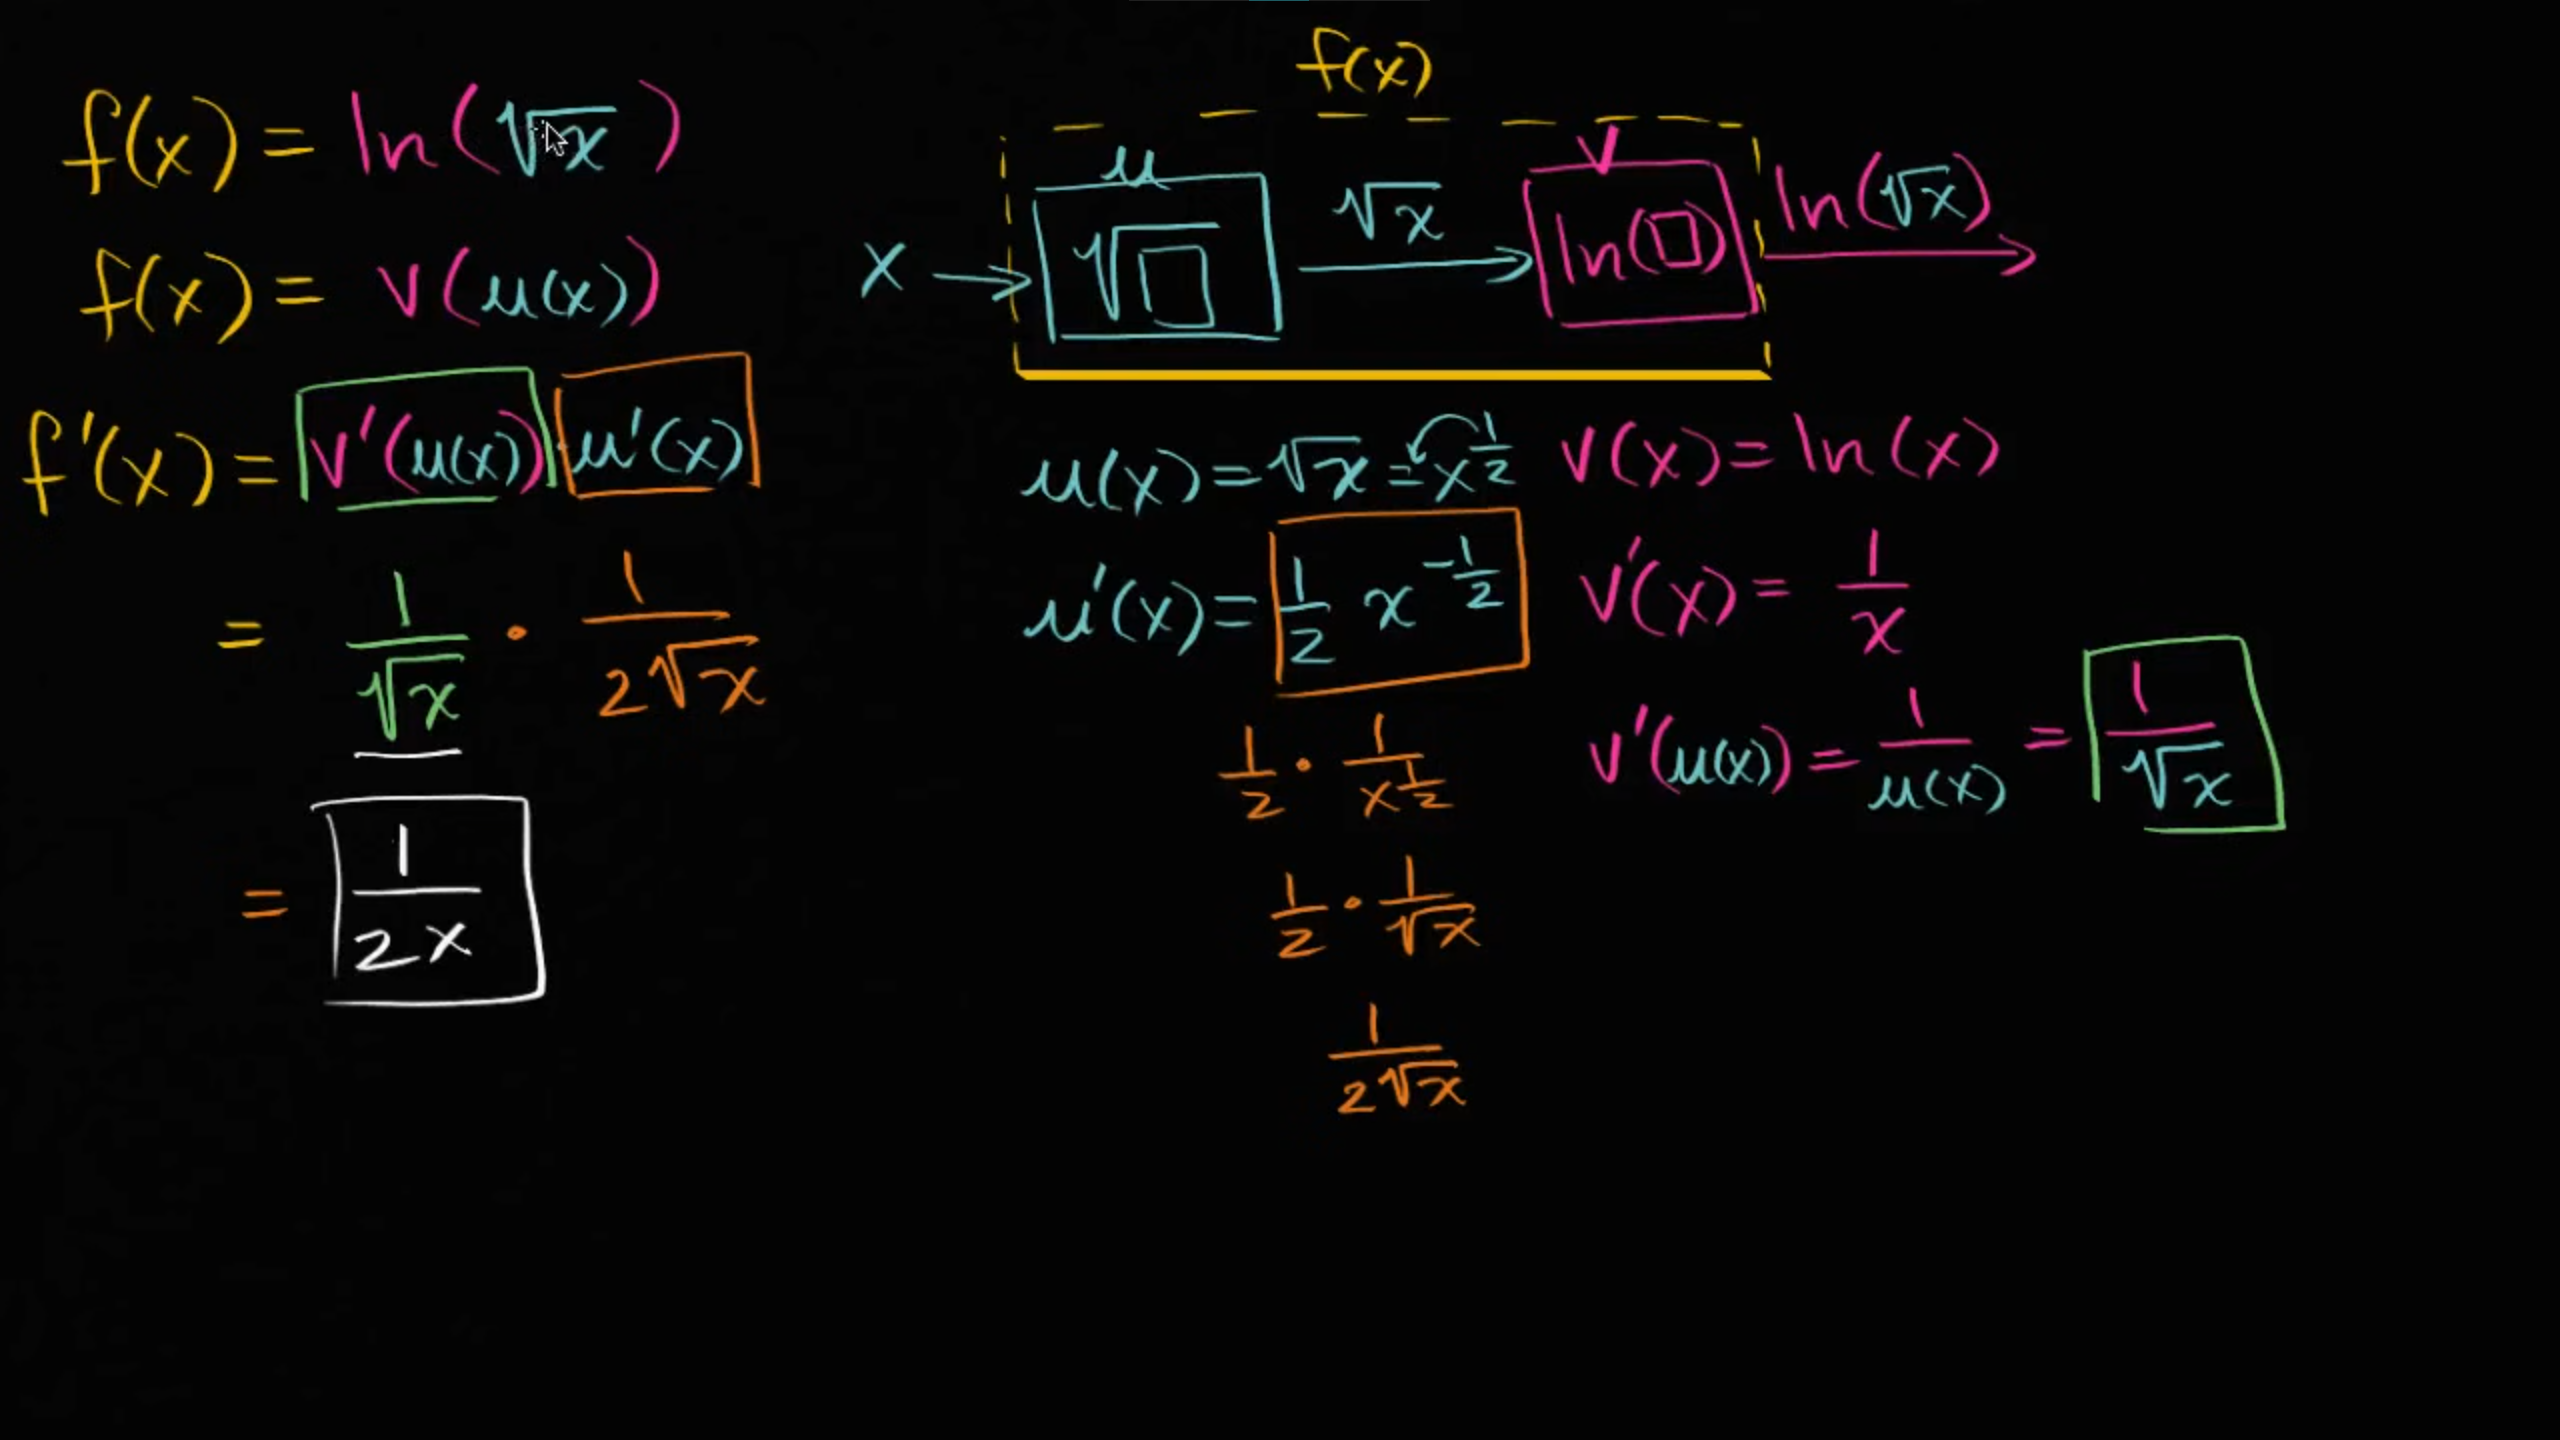 f(x) = ln(√x)
f(x) = v(u(x))
f'(x) = v'(u(x)) · u'(x)
= 1/√x · 1/(2√x)
= 1/(2x)
f(x)
u
v
x → √□ → √x → ln(□) → ln(√x)
u(x) = √x = x^(1/2)
u'(x) = 1/2 x^(-1/2)
1/2 · 1/x^(1/2)
1/2 · 1/√x
1/(2√x)
v(x) = ln(x)
v'(x) = 1/x
v'(u(x)) = 1/u(x) = 1/√x